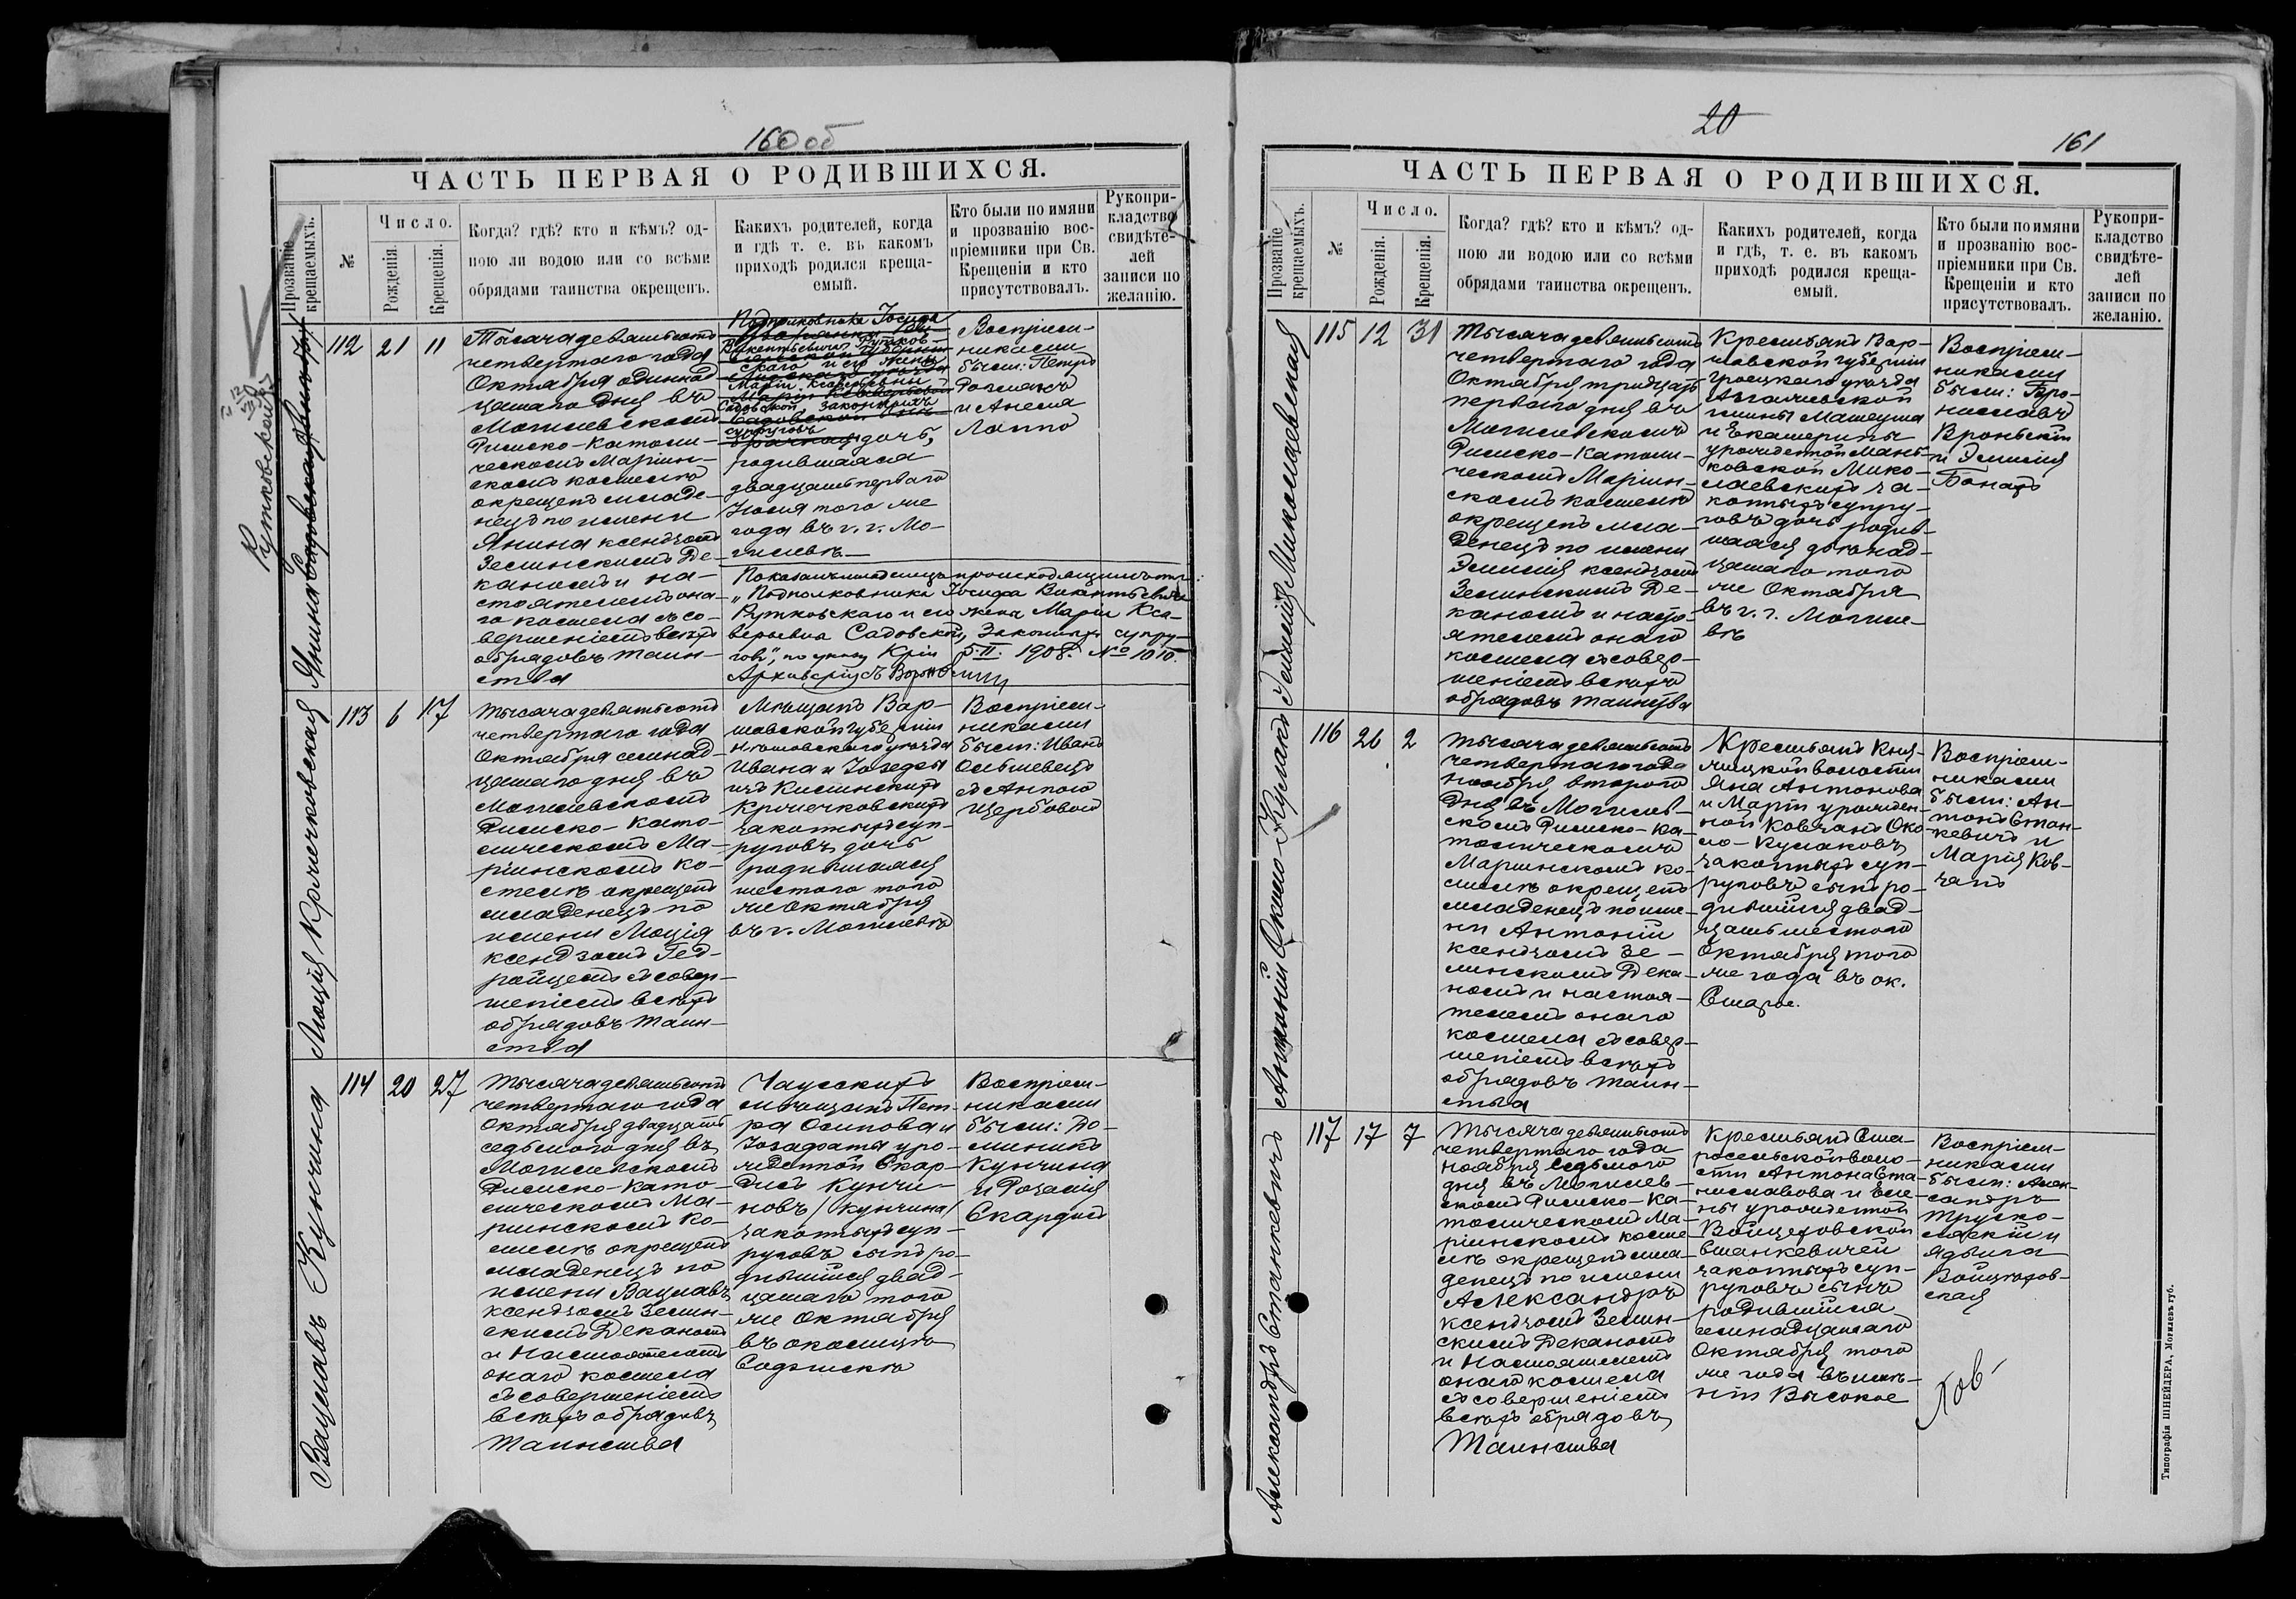 160 об
ЧАСТЬ ПЕРВАЯ О РОДИВШИХСЯ.
Прозваніе крещаемыхъ.
№
Число.
Рожденія.
Крещенія.
Когда? гдѣ? кто и кѣмъ? од-
ною ли водою или со всѣми
обрядами таинства окрещенъ.
Какихъ родителей, когда
и гдѣ т. е. въ какомъ
приходѣ родился креща-
емый.
Кто были по имяни
и прозванію вос-
пріемники при Св.
Крещеніи и кто
присутствовалъ.
Рукопри-
кладство
свидѣте-
лей
записи по
желанію.
Рутковская
Янина
112
21
11
Тысяча девятьсотъ
четвертаго года
Октября одиннад-
цатаго дня въ
Могилевскомъ
Римско-Католи-
ческомъ Маріин-
скомъ костелѣ
окрещенъ младе-
нецъ по имени
Янина ксендзомъ
Зелинскимъ Де-
каномъ и на-
стоятелемъ она-
го костела съ со-
вершеніемъ всѣхъ
обрядовъ таин-
ства
Подполковника Іосифа
Викентьевича Рутков-
скаго и его жены
Маріи Ксаверьевны
Садовской, законныхъ
супруговъ
дочь,
родившаяся
двадцать перваго
Іюля того же
года въ г. г. Мо-
гилевѣ
Воспріем-
никами
были: Петръ
Рожнакъ
и Анеля
Лаппо
„Подполковника Іосифа Викентьевича
Рутковскаго и его жена Маріи Кса-
верьевна Садовской, Законныхъ супру-
говъ", по указу Кріи 5.II. 1908. № 1010.
Люція Кричковская
113
6
17
Тысяча девятьсотъ
четвертаго года
Октября семнад-
цатаго дня въ
Могилевскомъ
Римско-Като-
лическомъ Ма-
ріинскомъ ко-
стелѣ окрещенъ
младенецъ по
имени Люція
ксендзомъ Гед-
ройцемъ съ совер-
шеніемъ всѣхъ
обрядовъ таин-
ства
Мѣщанъ Вар-
шавской губерніи
уѣзда
Ивана и Іозефы
изъ
законныхъ суп-
руговъ дочь
родившаяся
шестого того
же Октября
въ г. Могилевѣ
Воспріем-
никами
были: Иванъ
Ольшевецъ
съ Анною
Щербовою
Вацлавъ Кунчина
114
20
27
Тысяча девятьсотъ
четвертаго года
Октября двадцать
седьмого дня въ
Могилевскомъ
Римско-Като-
лическомъ Ма-
ріинскомъ ко-
стелѣ окрещенъ
младенецъ по
имени Вацлавъ
ксендзомъ Зелин-
скимъ Деканомъ
и Настоятелемъ
онаго костела
съ совершеніемъ
всѣхъ обрядовъ
Таинства
Чаусскихъ
мѣщанъ Пет-
ра Осипова и
Іозафаты уро-
жденной Скар-
дисъ Кунчи-
новъ /Кунчина/
законныхъ суп-
руговъ сынъ ро-
дившійся двад-
цатаго того
же Октября
въ околицѣ
Воспріем-
никами
были: До-
миникъ
Кунчина
и Розалія
Скардисъ
20
161
ЧАСТЬ ПЕРВАЯ О РОДИВШИХСЯ.
Прозваніе крещаемыхъ.
№
Число.
Рожденія.
Крещенія.
Когда? гдѣ? кто и кѣмъ? од-
ною ли водою или со всѣми
обрядами таинства окрещенъ.
Какихъ родителей, когда
и гдѣ, т. е. въ какомъ
приходѣ родился креща-
емый.
Кто были по имяни
и прозванію вос-
пріемники при Св.
Крещеніи и кто
присутствовалъ.
Рукопри-
кладство
свидѣте-
лей
записи по
желанію.
Эмилія Миколаевская
115
12
31
Тысяча девятьсотъ
четвертаго года
Октября тридцать
перваго дня въ
Могилевскомъ
Римско-Католи-
ческомъ Маріин-
скомъ костелѣ
окрещенъ мла-
денецъ по имени
Эмилія ксендзомъ
Зелинскимъ Де-
каномъ и насто-
ятелемъ онаго
костела съ совер-
шеніемъ всѣхъ
обрядовъ таинства
Крестьянъ Вар-
шавской губерніи
Гроецкаго уѣзда
гмины Матеуша
и Екатерины
урожденной Мань-
ковской Мико-
лаевскихъ за-
конныхъ супру-
говъ дочь родив-
шаяся двѣнад-
цатаго того
же Октября
въ г. г. Могиле-
вѣ
Воспріем-
никами
были: Бро-
ниславъ
Вроньскій
и Эмилія
Антоній Окило-Кулакъ
116
26
2
Тысяча девятьсотъ
четвертаго года
ноября второго
дня въ Могилев-
скомъ Римско-Ка-
толическомъ
Маріинскомъ ко-
стелѣ окрещенъ
младенецъ по име-
ни Антоній
ксендзомъ Зе-
линскимъ Дека-
номъ и настоя-
телемъ онаго
костела съ совер-
шеніемъ всѣхъ
обрядовъ таин-
ства
Крестьянъ Кня-
жицкой волости
Яна Антонова
и Маріи урожден-
ной Ковзанъ Око-
ло-Кулаковъ
законныхъ суп-
руговъ сынъ ро-
дившійся двад-
цать шестого
Октября того
же года въ ок.
Воспріем-
никами
были: Ан-
тонъ Стан-
кевичъ и
Марія Ков-
занъ
Александръ Станкевичъ
117
17
7
Тысяча девятьсотъ
четвертаго года
ноября седьмого
дня въ Могилев-
скомъ Римско-Ка-
толическомъ Ма-
ріинскомъ косте-
лѣ окрещенъ мла-
денецъ по имени
Александръ
ксендзомъ Зелин-
скимъ Деканомъ
и Настоятелемъ
онаго костела
съ совершеніемъ
всѣхъ обрядовъ
Таинства
Крестьянъ Ста-
росельской воло-
сти Антона Ста-
ниславова и Еле-
ны урожденной
Войцеховской
Станкевичей
законныхъ суп-
руговъ сынъ
родившійся
семнадцатаго
Октября того
же года въ имѣ-
ніи Высокое
Воспріем-
никами
были: Алек-
сандръ
Труско-
ляскій и
Ядвига
Войцехов-
ская
Типографія ШНЕЙДЕРА, Могилевъ губ.